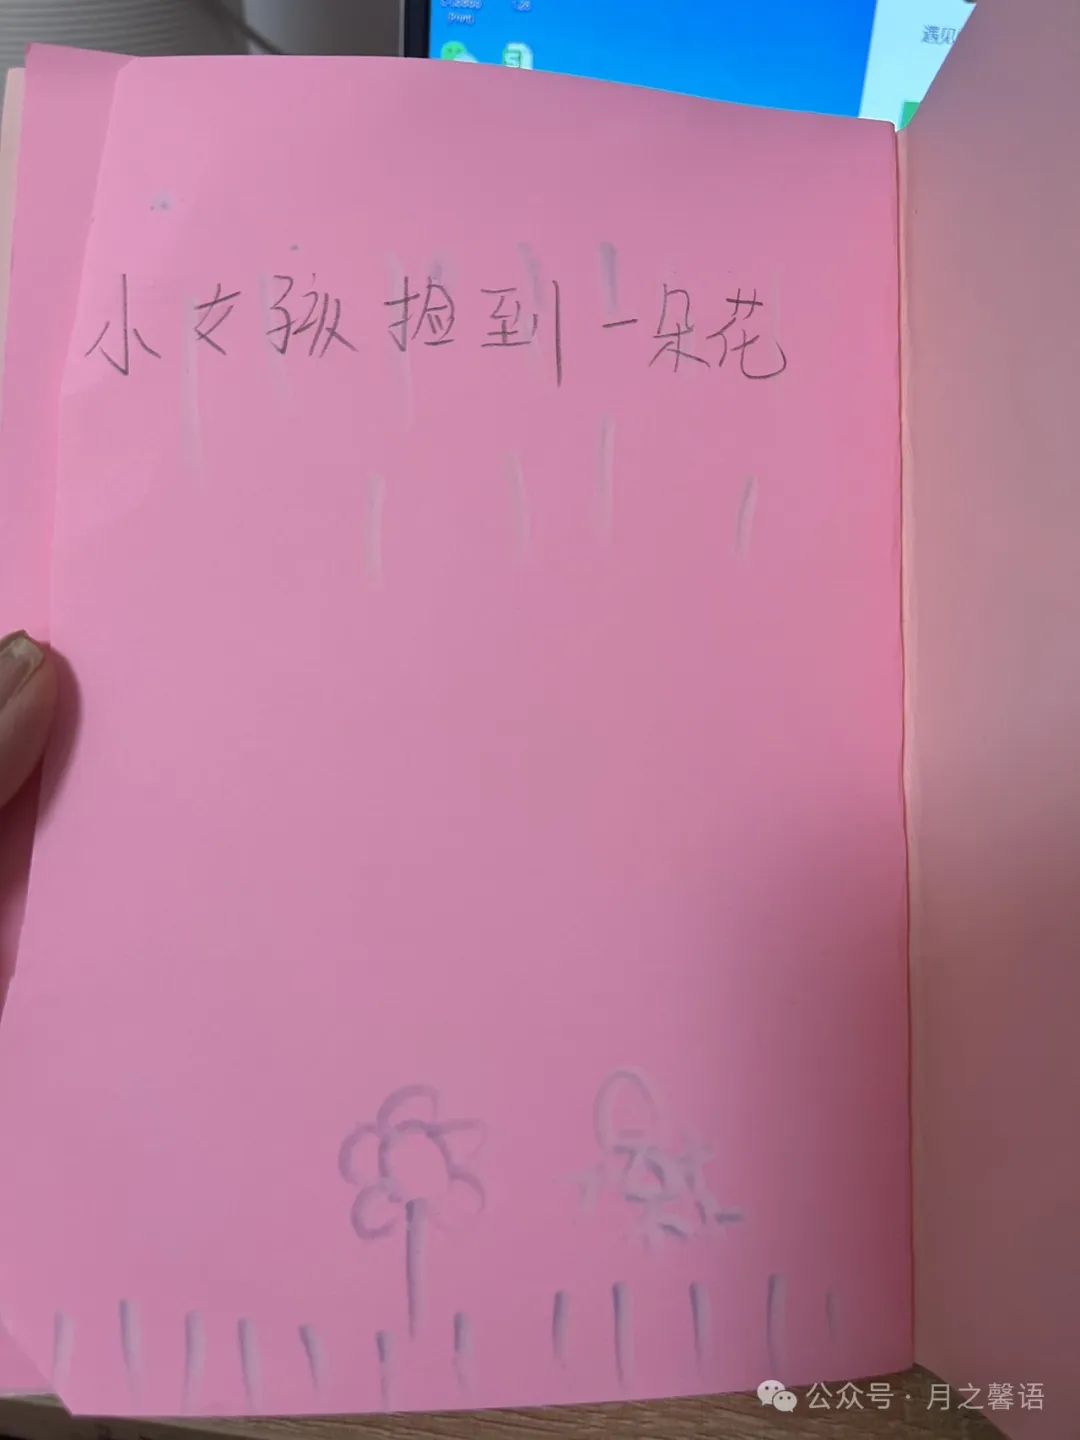 遇见
小女孩捡到一朵花
公众号·月之馨语